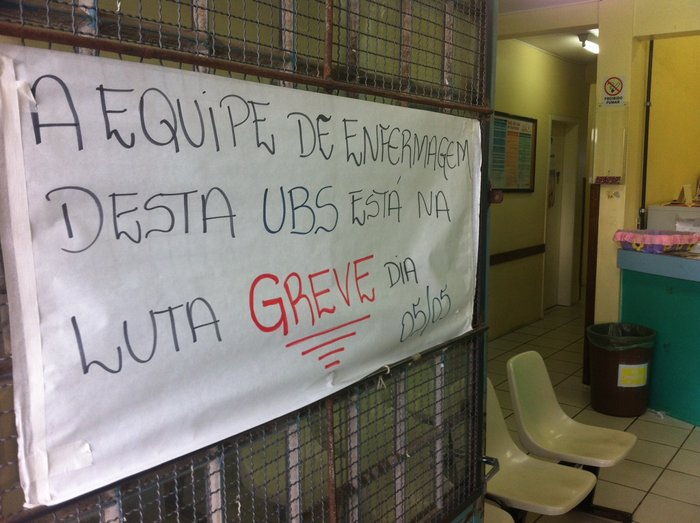 A EQUIPE DE ENFERMAGEM
DESTA UBS ESTÁ NA
LUTA GREVE DIA
05/05
PROIBIDO
FUMAR